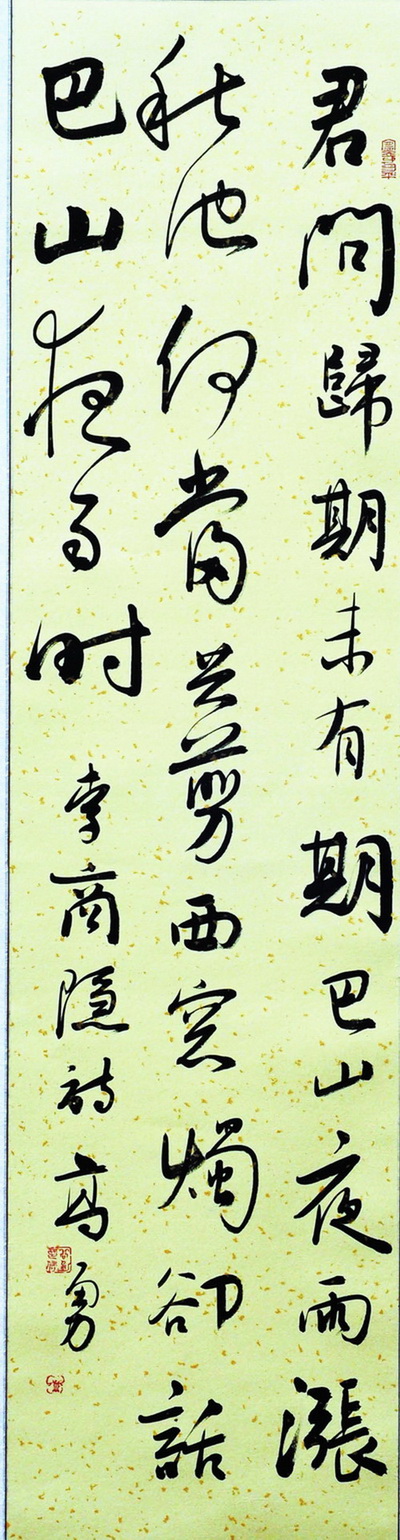 君問歸期未有期巴山夜雨漲
秋池何當共剪西窓燭卻話
巴山夜雨时 李商隱詩 高勇